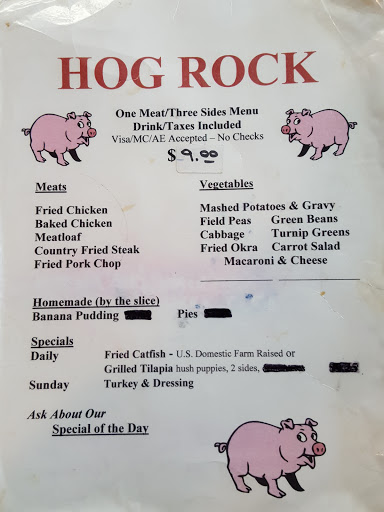 HOG ROCK
One Meat/Three Sides Menu
Drink/Taxes Included
Visa/MC/AE Accepted – No Checks
$ 9.00
Meats
Vegetables
Fried Chicken
Baked Chicken
Meatloaf
Country Fried Steak
Fried Pork Chop
Mashed Potatoes & Gravy
Field Peas Green Beans
Cabbage Turnip Greens
Fried Okra Carrot Salad
Macaroni & Cheese
Homemade (by the slice)
Banana Pudding Pies
Specials
Daily Fried Catfish - U.S. Domestic Farm Raised or
Grilled Tilapia hush puppies, 2 sides,
Sunday Turkey & Dressing
Ask About Our
Special of the Day